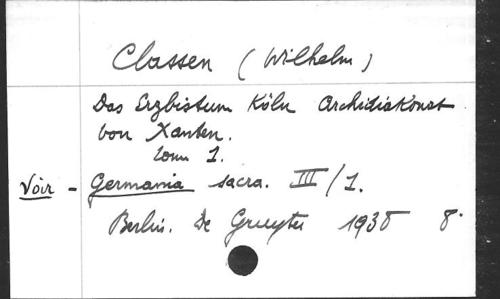 Classen (Wilhelm)
Das Erzbistum Köln Archidiakonat
von Xanten.
Tom 1.
Voir - Germania sacra. III/1.
Berlin. De Gruyter 1938 8°